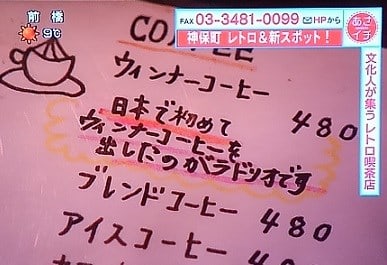 前橋
9℃
FAX 03-3481-0099 HPから
神保町 レトロ&新スポット!
あさイチ
文化人が集う レトロ喫茶店
COFFEE
ウィンナーコーヒー 480
日本で初めて
ウィンナーコーヒーを
出したのがラドリオです
ブレンドコーヒー 480
アイスコーヒー 48